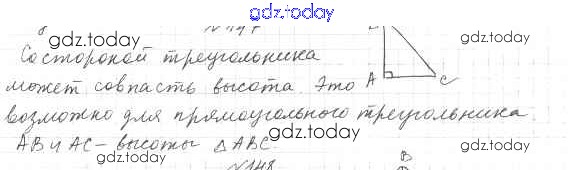 gdz.today
gdz.today
Со стороной треугольника
gdz.today
может совпасть высота. Это
A
C
gdz.today
возможно для прямоугольного треугольника.
gdz.today
AB и AC - высоты △ABC.
gdz.today
gdz.today
№148
B